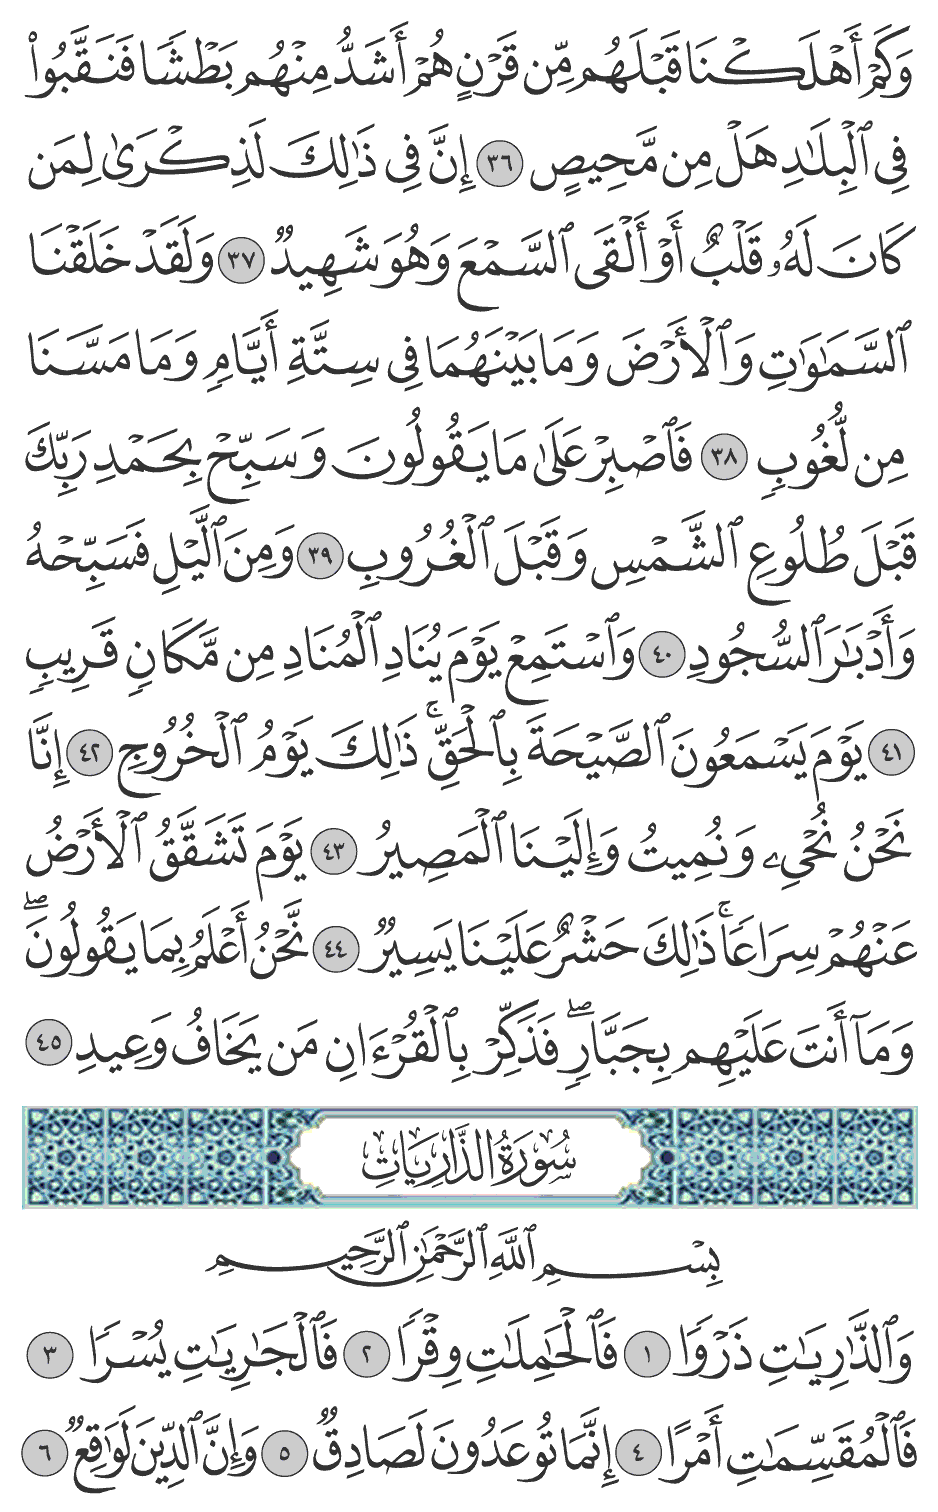 وَكَمْ أَهْلَكْنَا قَبْلَهُم مِّن قَرْنٍ هُمْ أَشَدُّ مِنْهُم بَطْشًا فَنَقَّبُوا۟
فِى ٱلْبِلَـٰدِ هَلْ مِن مَّحِيصٍ ٣٦ إِنَّ فِى ذَٰلِكَ لَذِكْرَىٰ لِمَن
كَانَ لَهُۥ قَلْبٌ أَوْ أَلْقَى ٱلسَّمْعَ وَهُوَ شَهِيدٌ ٣٧ وَلَقَدْ خَلَقْنَا
ٱلسَّمَـٰوَٰتِ وَٱلْأَرْضَ وَمَا بَيْنَهُمَا فِى سِتَّةِ أَيَّامٍ وَمَا مَسَّنَا
مِن لُّغُوبٍ ٣٨ فَٱصْبِرْ عَلَىٰ مَا يَقُولُونَ وَسَبِّحْ بِحَمْدِ رَبِّكَ
قَبْلَ طُلُوعِ ٱلشَّمْسِ وَقَبْلَ ٱلْغُرُوبِ ٣٩ وَمِنَ ٱلَّيْلِ فَسَبِّحْهُ
وَأَدْبَـٰرَ ٱلسُّجُودِ ٤٠ وَٱسْتَمِعْ يَوْمَ يُنَادِ ٱلْمُنَادِ مِن مَّكَانٍ قَرِيبٍ
٤١ يَوْمَ يَسْمَعُونَ ٱلصَّيْحَةَ بِٱلْحَقِّ ۚ ذَٰلِكَ يَوْمُ ٱلْخُرُوجِ ٤٢ إِنَّا
نَحْنُ نُحْىِۦ وَنُمِيتُ وَإِلَيْنَا ٱلْمَصِيرُ ٤٣ يَوْمَ تَشَقَّقُ ٱلْأَرْضُ
عَنْهُمْ سِرَاعًا ۚ ذَٰلِكَ حَشْرٌ عَلَيْنَا يَسِيرٌ ٤٤ نَّحْنُ أَعْلَمُ بِمَا يَقُولُونَ ۖ
وَمَآ أَنتَ عَلَيْهِم بِجَبَّارٍ ۖ فَذَكِّرْ بِٱلْقُرْءَانِ مَن يَخَافُ وَعِيدِ ٤٥
سُورَةُ الذَّارِيَاتِ
بِسْمِ ٱللَّهِ ٱلرَّحْمَـٰنِ ٱلرَّحِيمِ
وَٱلذَّٰرِيَـٰتِ ذَرْوًا ١ فَٱلْحَـٰمِلَـٰتِ وِقْرًا ٢ فَٱلْجَـٰرِيَـٰتِ يُسْرًا ٣
فَٱلْمُقَسِّمَـٰتِ أَمْرًا ٤ إِنَّمَا تُوعَدُونَ لَصَادِقٌ ٥ وَإِنَّ ٱلدِّينَ لَوَٰقِعٌ ٦